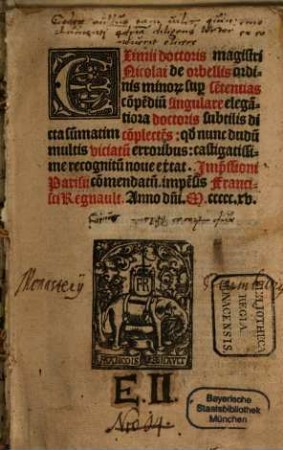 EXimii doctoris magistri
Nicolai de orbellis ordi
nis minorꝝ sup sētentias
cōpēdiū singulare elegā-
tiora doctoris subtilis di
cta summatim cōplectēs: qđ nunc dudū
multis viciatū erroribus: castigatissi-
me recognitū noue extat. Impressioni
Parisii cōmendatū. impēsis Franci-
sci Regnault. Anno dñi. M. ccccc. xv.
FR
FRANCOIS REGNAULT
Monasterij
BIBLIOTHECA
REGIA
MONACENSIS.
E.II.
Bayerische
Staatsbibliothek
München